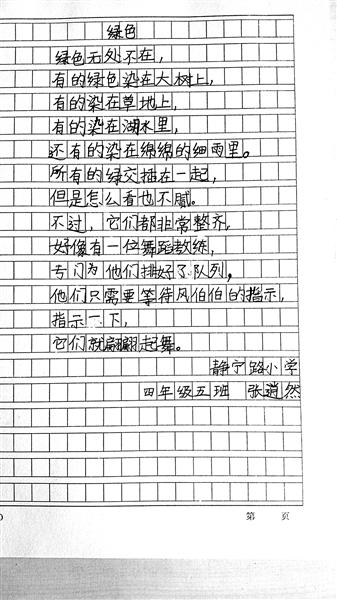 绿色
绿色无处不在,
有的绿色染在大树上,
有的染在草地上,
有的染在湖水里,
还有的染在绵绵的细雨里。
所有的绿交插在一起,
但是怎么看也不腻。
不过,它们都非常整齐,
好像有一位舞蹈教练,
专门为他们排好了队列,
他们只需要等待风伯伯的指示,
指示一下,
它们就翩翩起舞。
静宁路小学
四年级五班 张逍然
第 页